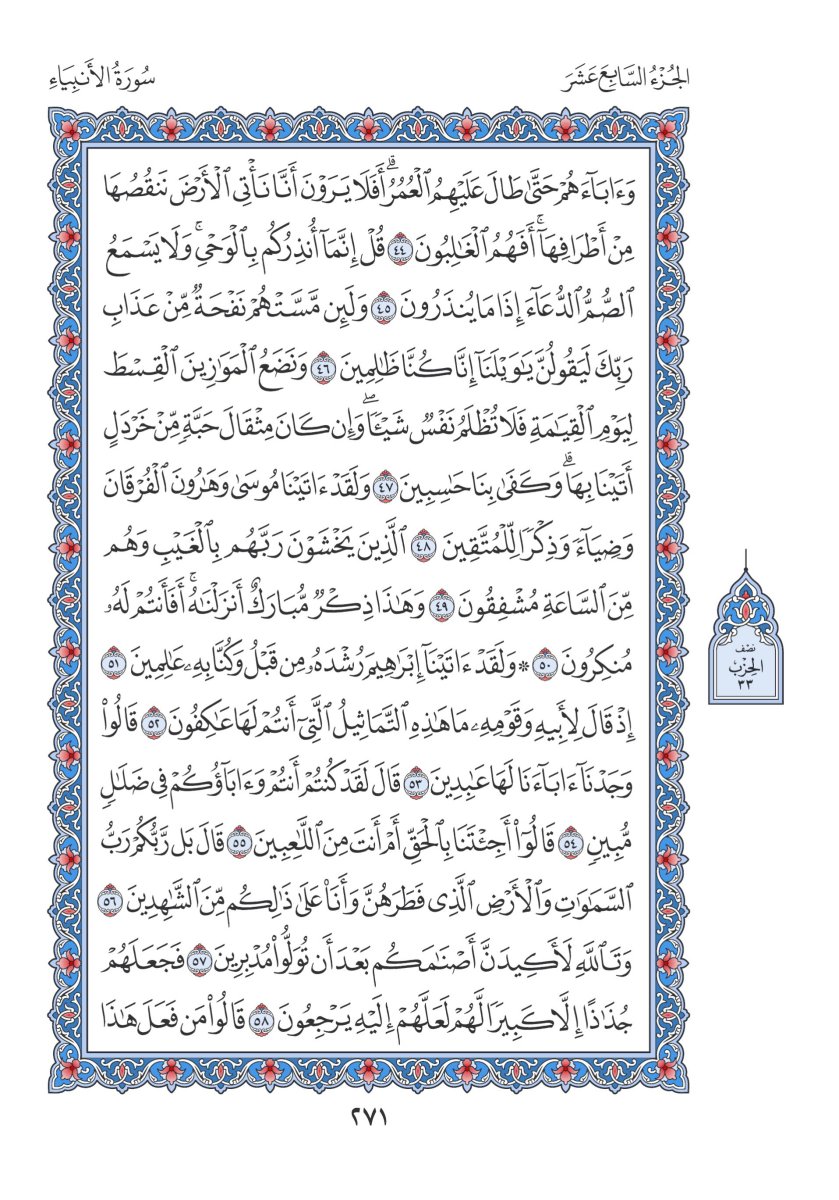 الجُزْءُ السَّابِعَ عَشَرَ
سُورَةُ الأَنبِيَاءِ
وَءَابَآءَهُمۡ حَتَّىٰ طَالَ عَلَيۡهِمُ ٱلۡعُمُرُۗ أَفَلَا يَرَوۡنَ أَنَّا نَأۡتِي ٱلۡأَرۡضَ نَنقُصُهَا
مِنۡ أَطۡرَافِهَآۚ أَفَهُمُ ٱلۡغَٰلِبُونَ ٤٤ قُلۡ إِنَّمَآ أُنذِرُكُم بِٱلۡوَحۡيِۚ وَلَا يَسۡمَعُ
ٱلصُّمُّ ٱلدُّعَآءَ إِذَا مَا يُنذَرُونَ ٤٥ وَلَئِن مَّسَّتۡهُمۡ نَفۡحَةٞ مِّنۡ عَذَابِ
رَبِّكَ لَيَقُولُنَّ يَٰوَيۡلَنَآ إِنَّا كُنَّا ظَٰلِمِينَ ٤٦ وَنَضَعُ ٱلۡمَوَٰزِينَ ٱلۡقِسۡطَ
لِيَوۡمِ ٱلۡقِيَٰمَةِ فَلَا تُظۡلَمُ نَفۡسٞ شَيۡـٔٗاۖ وَإِن كَانَ مِثۡقَالَ حَبَّةٖ مِّنۡ خَرۡدَلٍ
أَتَيۡنَا بِهَاۗ وَكَفَىٰ بِنَا حَٰسِبِينَ ٤٧ وَلَقَدۡ ءَاتَيۡنَا مُوسَىٰ وَهَٰرُونَ ٱلۡفُرۡقَانَ
وَضِيَآءٗ وَذِكۡرٗا لِّلۡمُتَّقِينَ ٤٨ ٱلَّذِينَ يَخۡشَوۡنَ رَبَّهُم بِٱلۡغَيۡبِ وَهُم
مِّنَ ٱلسَّاعَةِ مُشۡفِقُونَ ٤٩ وَهَٰذَا ذِكۡرٞ مُّبَارَكٌ أَنزَلۡنَٰهُۚ أَفَأَنتُمۡ لَهُۥ
مُنكِرُونَ ٥٠ ۞ وَلَقَدۡ ءَاتَيۡنَآ إِبۡرَٰهِيمَ رُشۡدَهُۥ مِن قَبۡلُ وَكُنَّا بِهِۦ عَٰلِمِينَ ٥١
إِذۡ قَالَ لِأَبِيهِ وَقَوۡمِهِۦ مَا هَٰذِهِ ٱلتَّمَاثِيلُ ٱلَّتِيٓ أَنتُمۡ لَهَا عَٰكِفُونَ ٥٢ قَالُواْ
وَجَدۡنَآ ءَابَآءَنَا لَهَا عَٰبِدِينَ ٥٣ قَالَ لَقَدۡ كُنتُمۡ أَنتُمۡ وَءَابَآؤُكُمۡ فِي ضَلَٰلٖ
مُّبِينٖ ٥٤ قَالُوٓاْ أَجِئۡتَنَا بِٱلۡحَقِّ أَمۡ أَنتَ مِنَ ٱللَّٰعِبِينَ ٥٥ قَالَ بَل رَّبُّكُمۡ رَبُّ
ٱلسَّمَٰوَٰتِ وَٱلۡأَرۡضِ ٱلَّذِي فَطَرَهُنَّ وَأَنَا۠ عَلَىٰ ذَٰلِكُم مِّنَ ٱلشَّٰهِدِينَ ٥٦
وَتَٱللَّهِ لَأَكِيدَنَّ أَصۡنَٰمَكُم بَعۡدَ أَن تُوَلُّواْ مُدۡبِرِينَ ٥٧ فَجَعَلَهُمۡ
جُذَٰذًا إِلَّا كَبِيرٗا لَّهُمۡ لَعَلَّهُمۡ إِلَيۡهِ يَرۡجِعُونَ ٥٨ قَالُواْ مَن فَعَلَ هَٰذَا
نِصْف
الحِزْب
٣٣
٢٧١